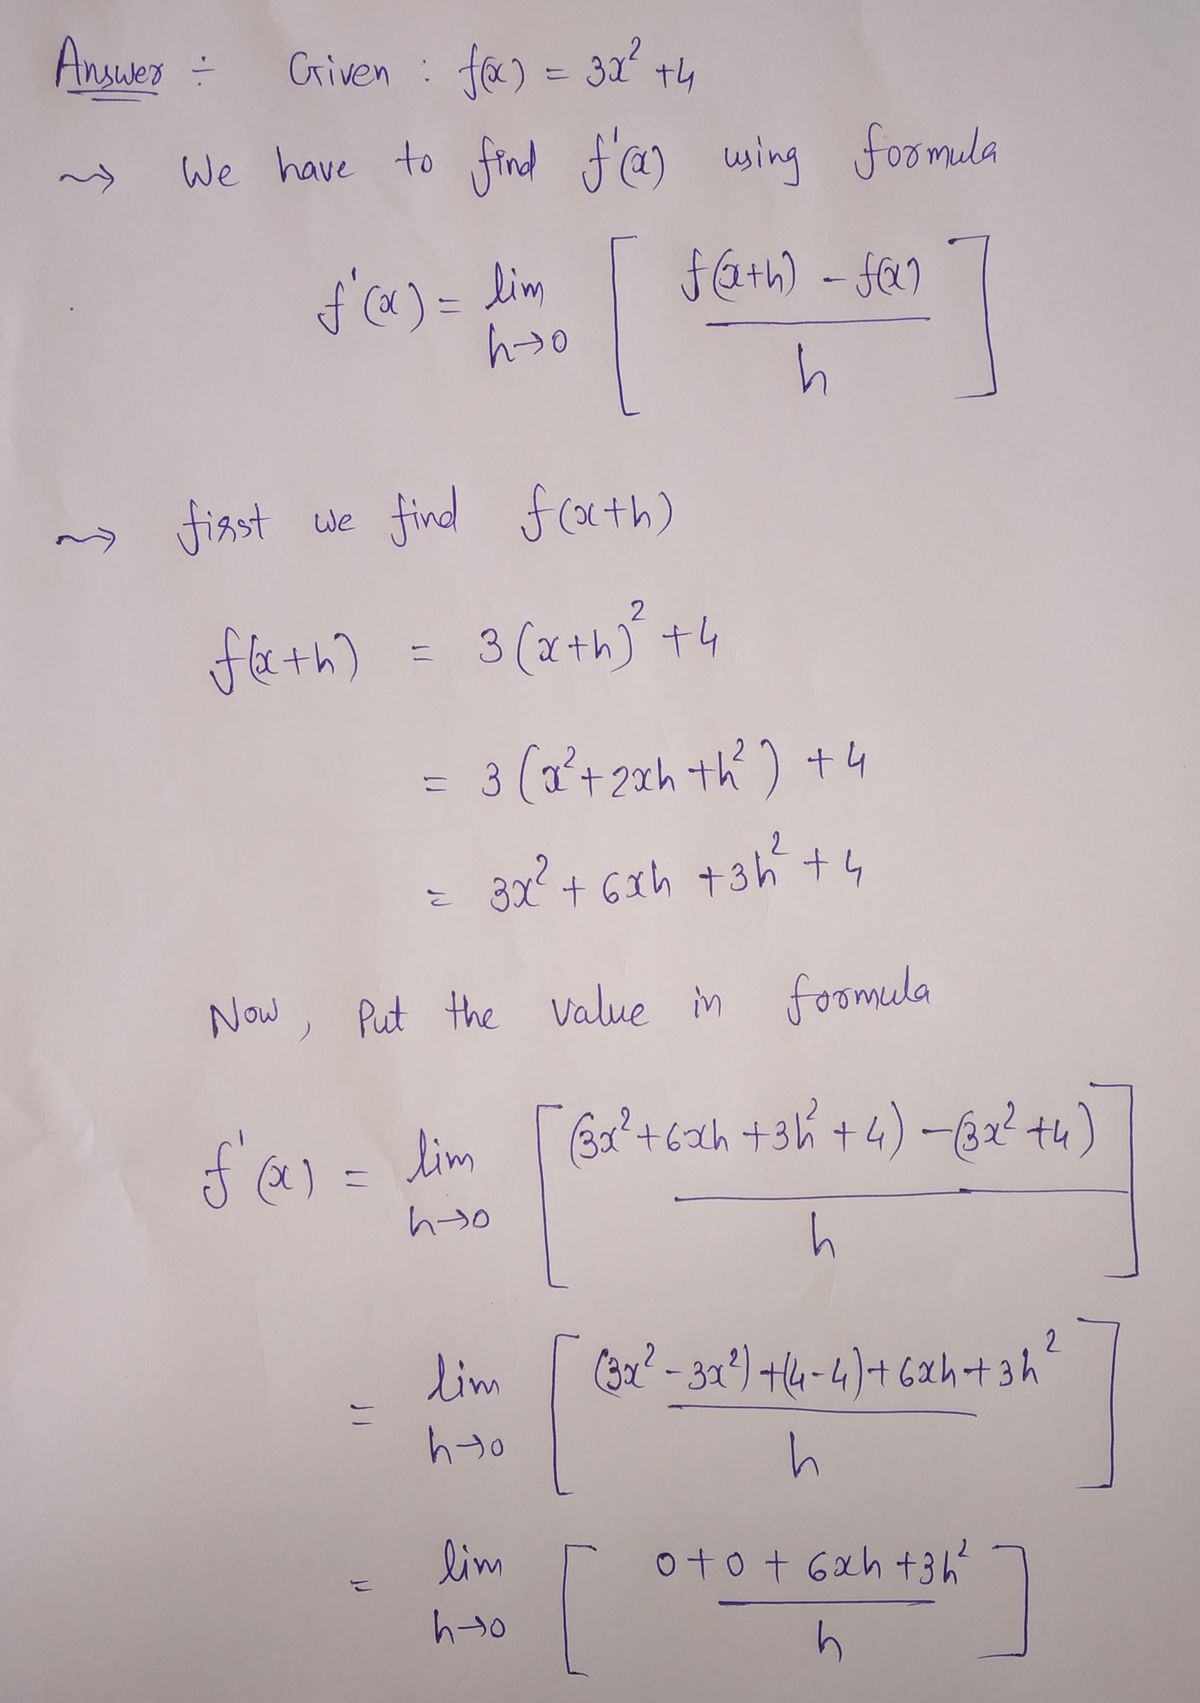 Answer ÷ Given : f(x) = 3x² + 4
⇝ We have to find f'(x) using formula
f'(x) = lim h→0 [ f(x+h) - f(x) / h ]
⇝ first we find f(x+h)
f(x+h) = 3(x+h)² + 4
= 3(x² + 2xh + h²) + 4
= 3x² + 6xh + 3h² + 4
Now, Put the value in formula
f'(x) = lim h→0 [ (3x² + 6xh + 3h² + 4) - (3x² + 4) / h ]
= lim h→0 [ (3x² - 3x²) + (4-4) + 6xh + 3h² / h ]
= lim h→0 [ 0 + 0 + 6xh + 3h² / h ]